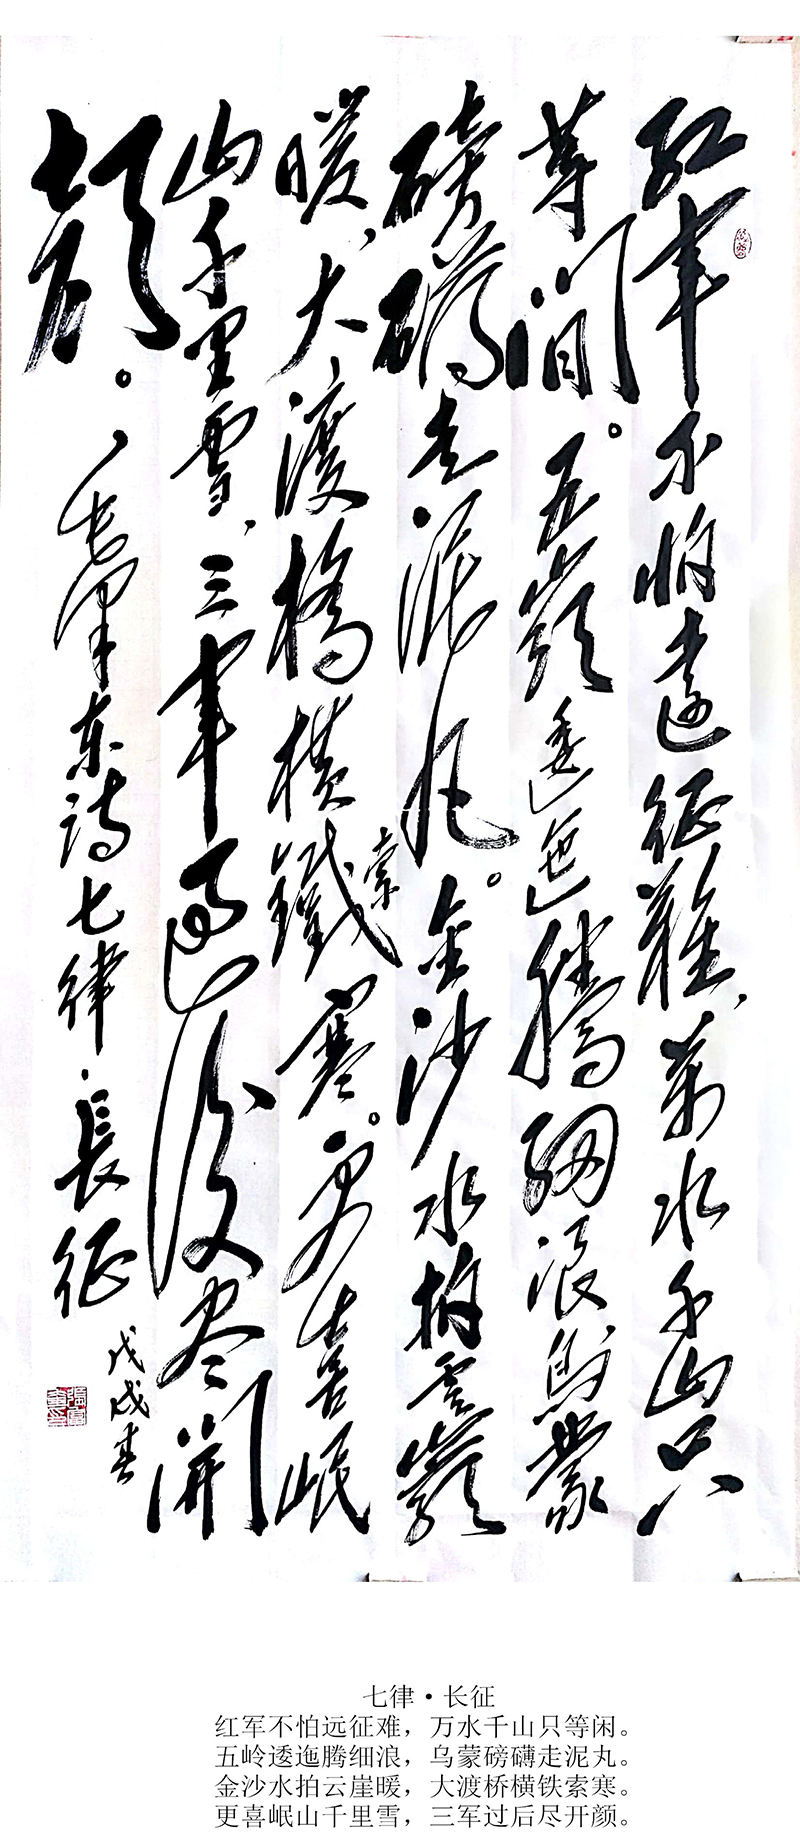 紅軍不怕遠征難、萬水千山只
等間。五嶺逶迤騰細浪烏蒙
磅礴走泥丸。金沙水拍雲巖
暖、大渡橋橫鐵索寒。更喜岷
山千里雪、三軍過後尽開
顏。毛澤东詩七律·長征
戊戌春
七律·长征
红军不怕远征难，万水千山只等闲。
五岭逶迤腾细浪，乌蒙磅礴走泥丸。
金沙水拍云崖暖，大渡桥横铁索寒。
更喜岷山千里雪，三军过后尽开颜。